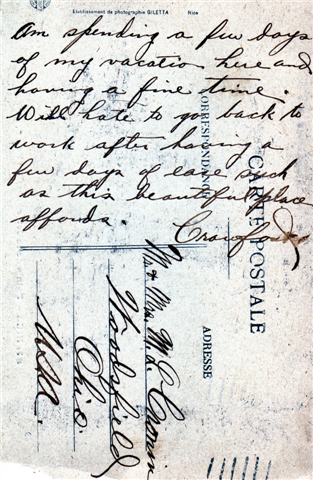 Etablissement de photographie GILETTA Nice
Am spending a few days
of my vacation here and
having a fine time.
Will hate to go back to
work after having a
few days of ease such
as this beautiful place
affords.
CARTE POSTALE
CORRESPONDANCE
ADRESSE
Mr & Mrs. M. Cronin
Woodsfield
Ohio.
USA.